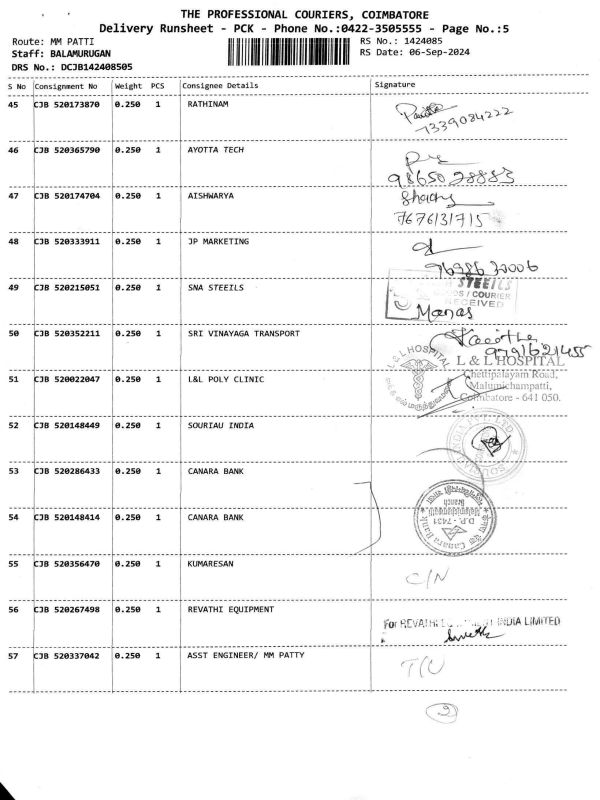 THE PROFESSIONAL COURIERS, COIMBATORE
Delivery Runsheet - PCK - Phone No.:0422-3505555 - Page No.:5
Route: MM PATTI
RS No.: 1424085
Staff: BALAMURUGAN
RS Date: 06-Sep-2024
DRS No.: DCJB142408505
S No Consignment No Weight PCS Consignee Details Signature
45 CJB 520173870 0.250 1 RATHINAM
7339084222
46 CJB 520365790 0.250 1 AYOTTA TECH
9865028883
47 CJB 520174704 0.250 1 AISHWARYA
7676131715
48 CJB 520333911 0.250 1 JP MARKETING
49 CJB 520215051 0.250 1 SNA STEEILS
STEEILS
/ COURIER
RECEIVED
Manas
50 CJB 520352211 0.250 1 SRI VINAYAGA TRANSPORT
9791621455
51 CJB 520022047 0.250 1 L&L POLY CLINIC
L & L HOSPITAL
L & L HOSPITAL
Chettipalayam Road,
Malumichampatti,
Coimbatore - 641 050.
52 CJB 520148449 0.250 1 SOURIAU INDIA
53 CJB 520286433 0.250 1 CANARA BANK
54 CJB 520148414 0.250 1 CANARA BANK
Malumichampatti
Branch
D.P. - 7431
Canara Bank
55 CJB 520356470 0.250 1 KUMARESAN
C/N
56 CJB 520267498 0.250 1 REVATHI EQUIPMENT
For REVATHI INDIA LIMITED
57 CJB 520337042 0.250 1 ASST ENGINEER/ MM PATTY
2